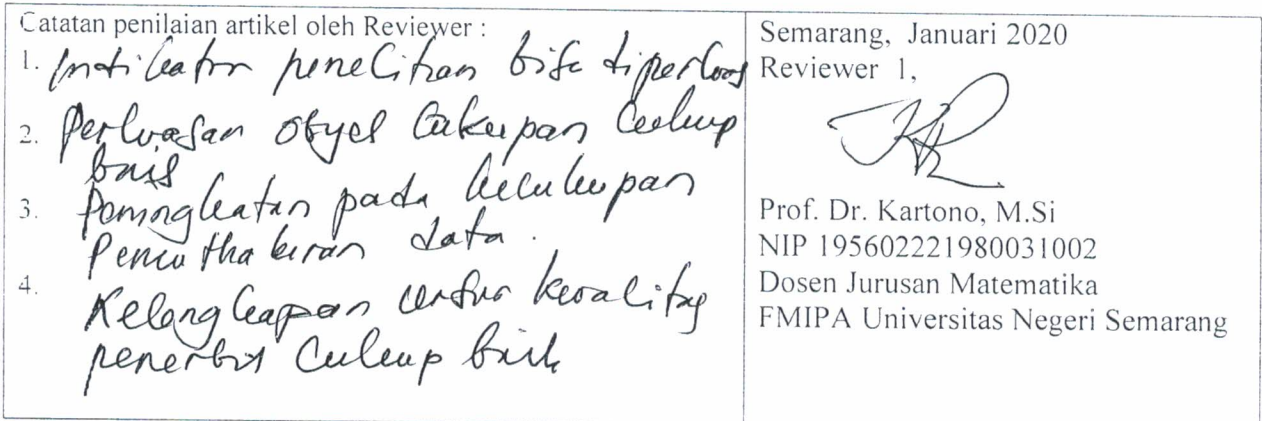 Catatan penilaian artikel oleh Reviewer :
1. Indikator penelitian bisa diperluas
2. Perluasan obyek Cakupan Cukup
baik
3. Peningkatan pada kecukupan
Pemuthakiran data.
4. Kelengkapan unsur kualitas
penerbit Cukup baik
Semarang, Januari 2020
Reviewer 1,
Prof. Dr. Kartono, M.Si
NIP 195602221980031002
Dosen Jurusan Matematika
FMIPA Universitas Negeri Semarang